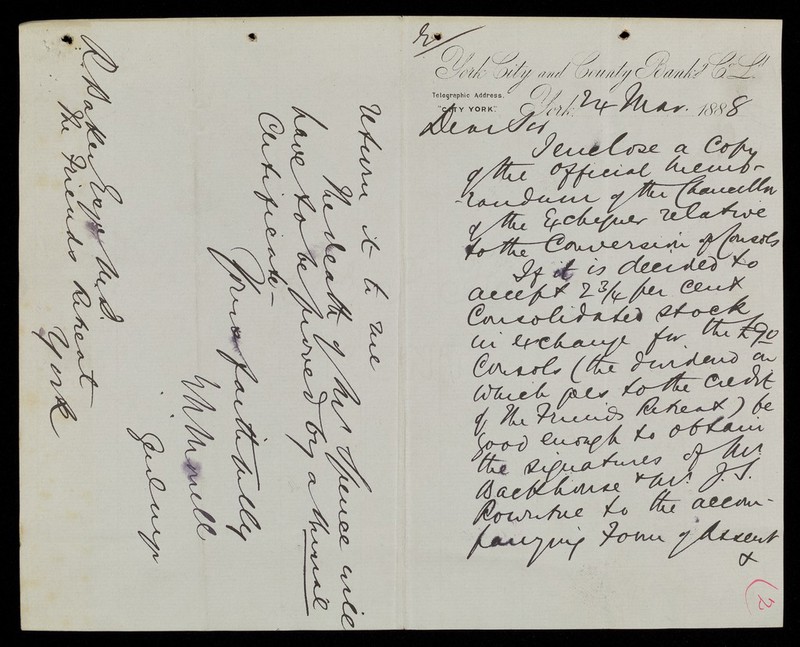 York City and County Bank Co. Ld.
Telegraphic Address.
"CITY YORK".
York, 24 Mar. 1888
Dear Sir
I enclose a Copy
of the Official Memo-
randum of the Chancellor
of the Exchequer relative
to the Conversion of Consols
If it is decided to
accept 2 3/4 per Cent
Consolidated Stock
in exchange for the £90
Consols (the dividend on
which goes to the Credit
of the Friends Retreat) be
good enough to obtain
the signatures of Mr.
Backhouse & Mr. J. S.
Rowntree to the accom-
panying Form of Assent
&
(2
return it to me
The death of Mr Spence will
have to be proved by a burial
Certificate -
Yours faithfully
R. Baker Esqr M.D.
The Friends Retreat
York